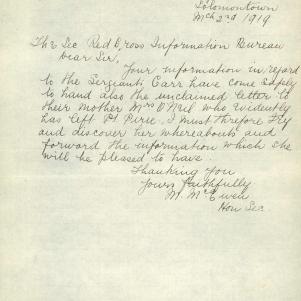 Solomontown
Mch 2nd 1919
The Sec Red Cross Information Bureau
Dear Sir,
Your information in regard
to the Sergiants Carr have come safely
to hand also the unclaimed letter to
their mother Mrs O'Neil who evidently
has left Pt Pirie. I must therefore try
and discover her whereabouts and
forward the information which she
will be pleased to have.
Thanking You
Yours faithfully
M. McEwen
Hon Sec.